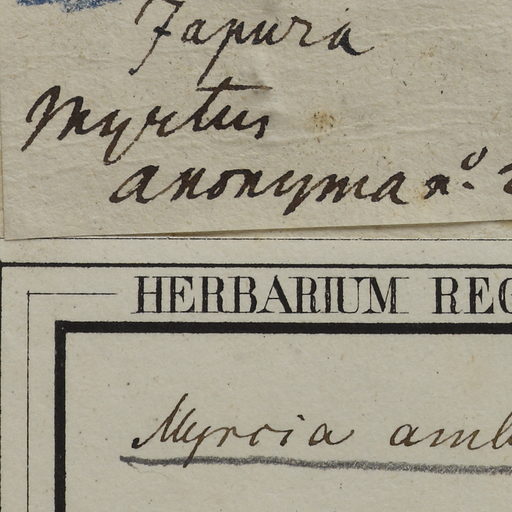 Japura
Myrtus
anonyma nº. 2
HERBARIUM REG
Myrcia amb